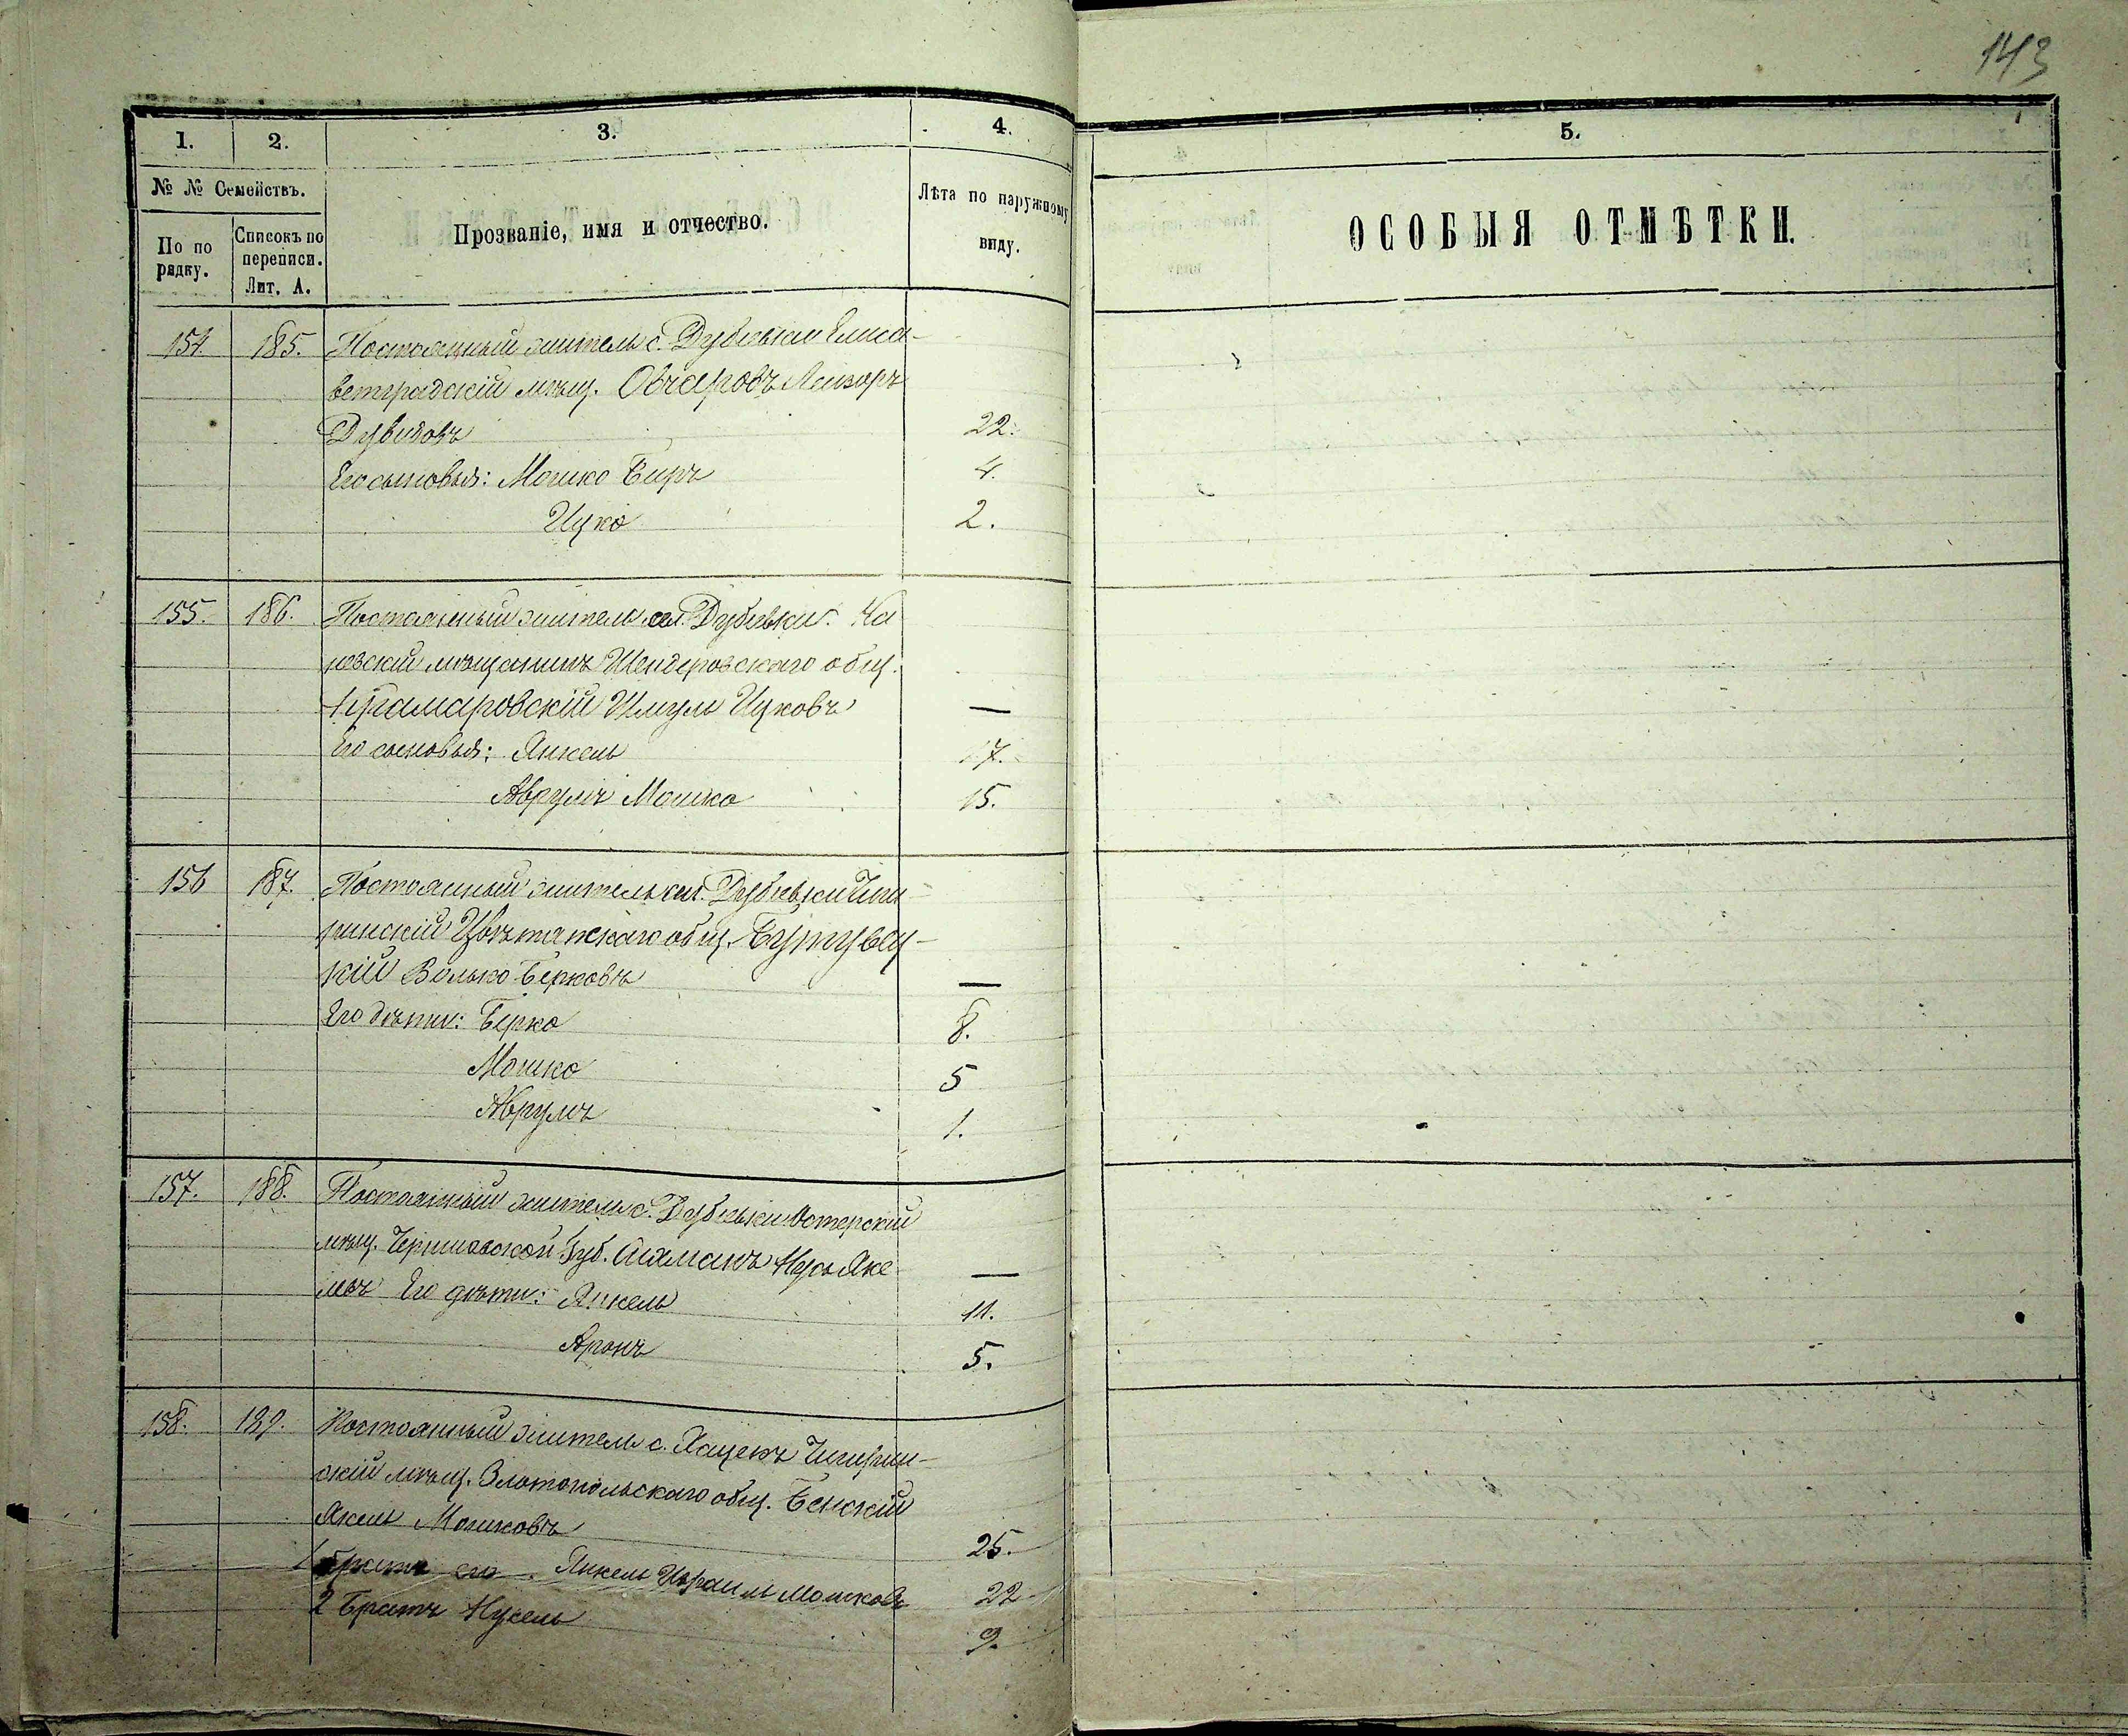 143
1. 2. 3. 4. 5.
№ № Семействъ.
По по рядку.
Списокъ по переписи. Лит. А.
Прозваніе, имя и отчество.
Лѣта по наружному виду.
ОСОБЫЯ ОТМѢТКИ.
154. 185. Постоянный житель с. Дубіевки Елиса-
ветградскій мѣщ. Овчаровъ Лейзоръ
Дувидовъ 22.
Его сыновья: Мошко Беръ 4.
Ицко 2.
155. 186. Постоянный житель сел. Дубіевки. Ка
невскій мѣщанинъ Шендеровскаго общ.
Крамаровскій Шмуль Ицковъ —
Его сыновья: Янкель 17.
Аврумъ Мошко 15.
156 187. Постоянный житель сел. Дубіевки Чиги-
ринскій общ.
кій Волько Берковъ —
Его дѣти: Берко 8.
Мошко 5
Аврумъ 1.
157. 188. Постоянный житель с. Дубіевки Остерскій
мѣщ. Черниговской Губ. —
Его дѣти: Янкель 11.
Аронъ 5.
158. 189. Постоянный житель с. Чигирин-
скій мѣщ. Златопольскаго общ. Бенскій
Мошковъ 25.
1 братъ его Янкель Мошковъ 22
2 Братъ Нусель 9.